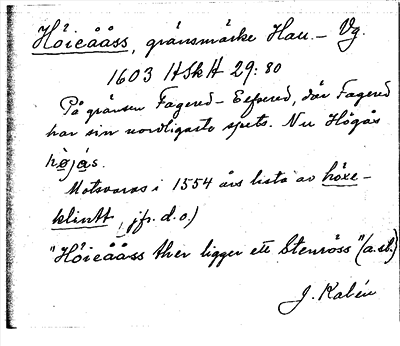 Höieååss, gränsmärke Hall. – Vg.
1603 HSkH 29:80
På gränsen Fagered – Elfvered, där Fagered
har sin nordligaste spets. Nu Högås
högås.
Motsvaras i 1554 års lista av höxe-
klintt, jfr. d.o.)
"Höieååss ther ligger ett Stenröss" (a.st.)
J. Kalén